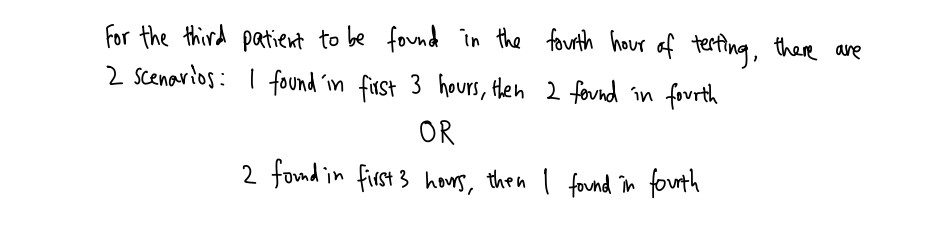 For the third patient to be found in the fourth hour of testing, there are
2 scenarios: 1 found in first 3 hours, then 2 found in fourth
OR
2 found in first 3 hours, then 1 found in fourth